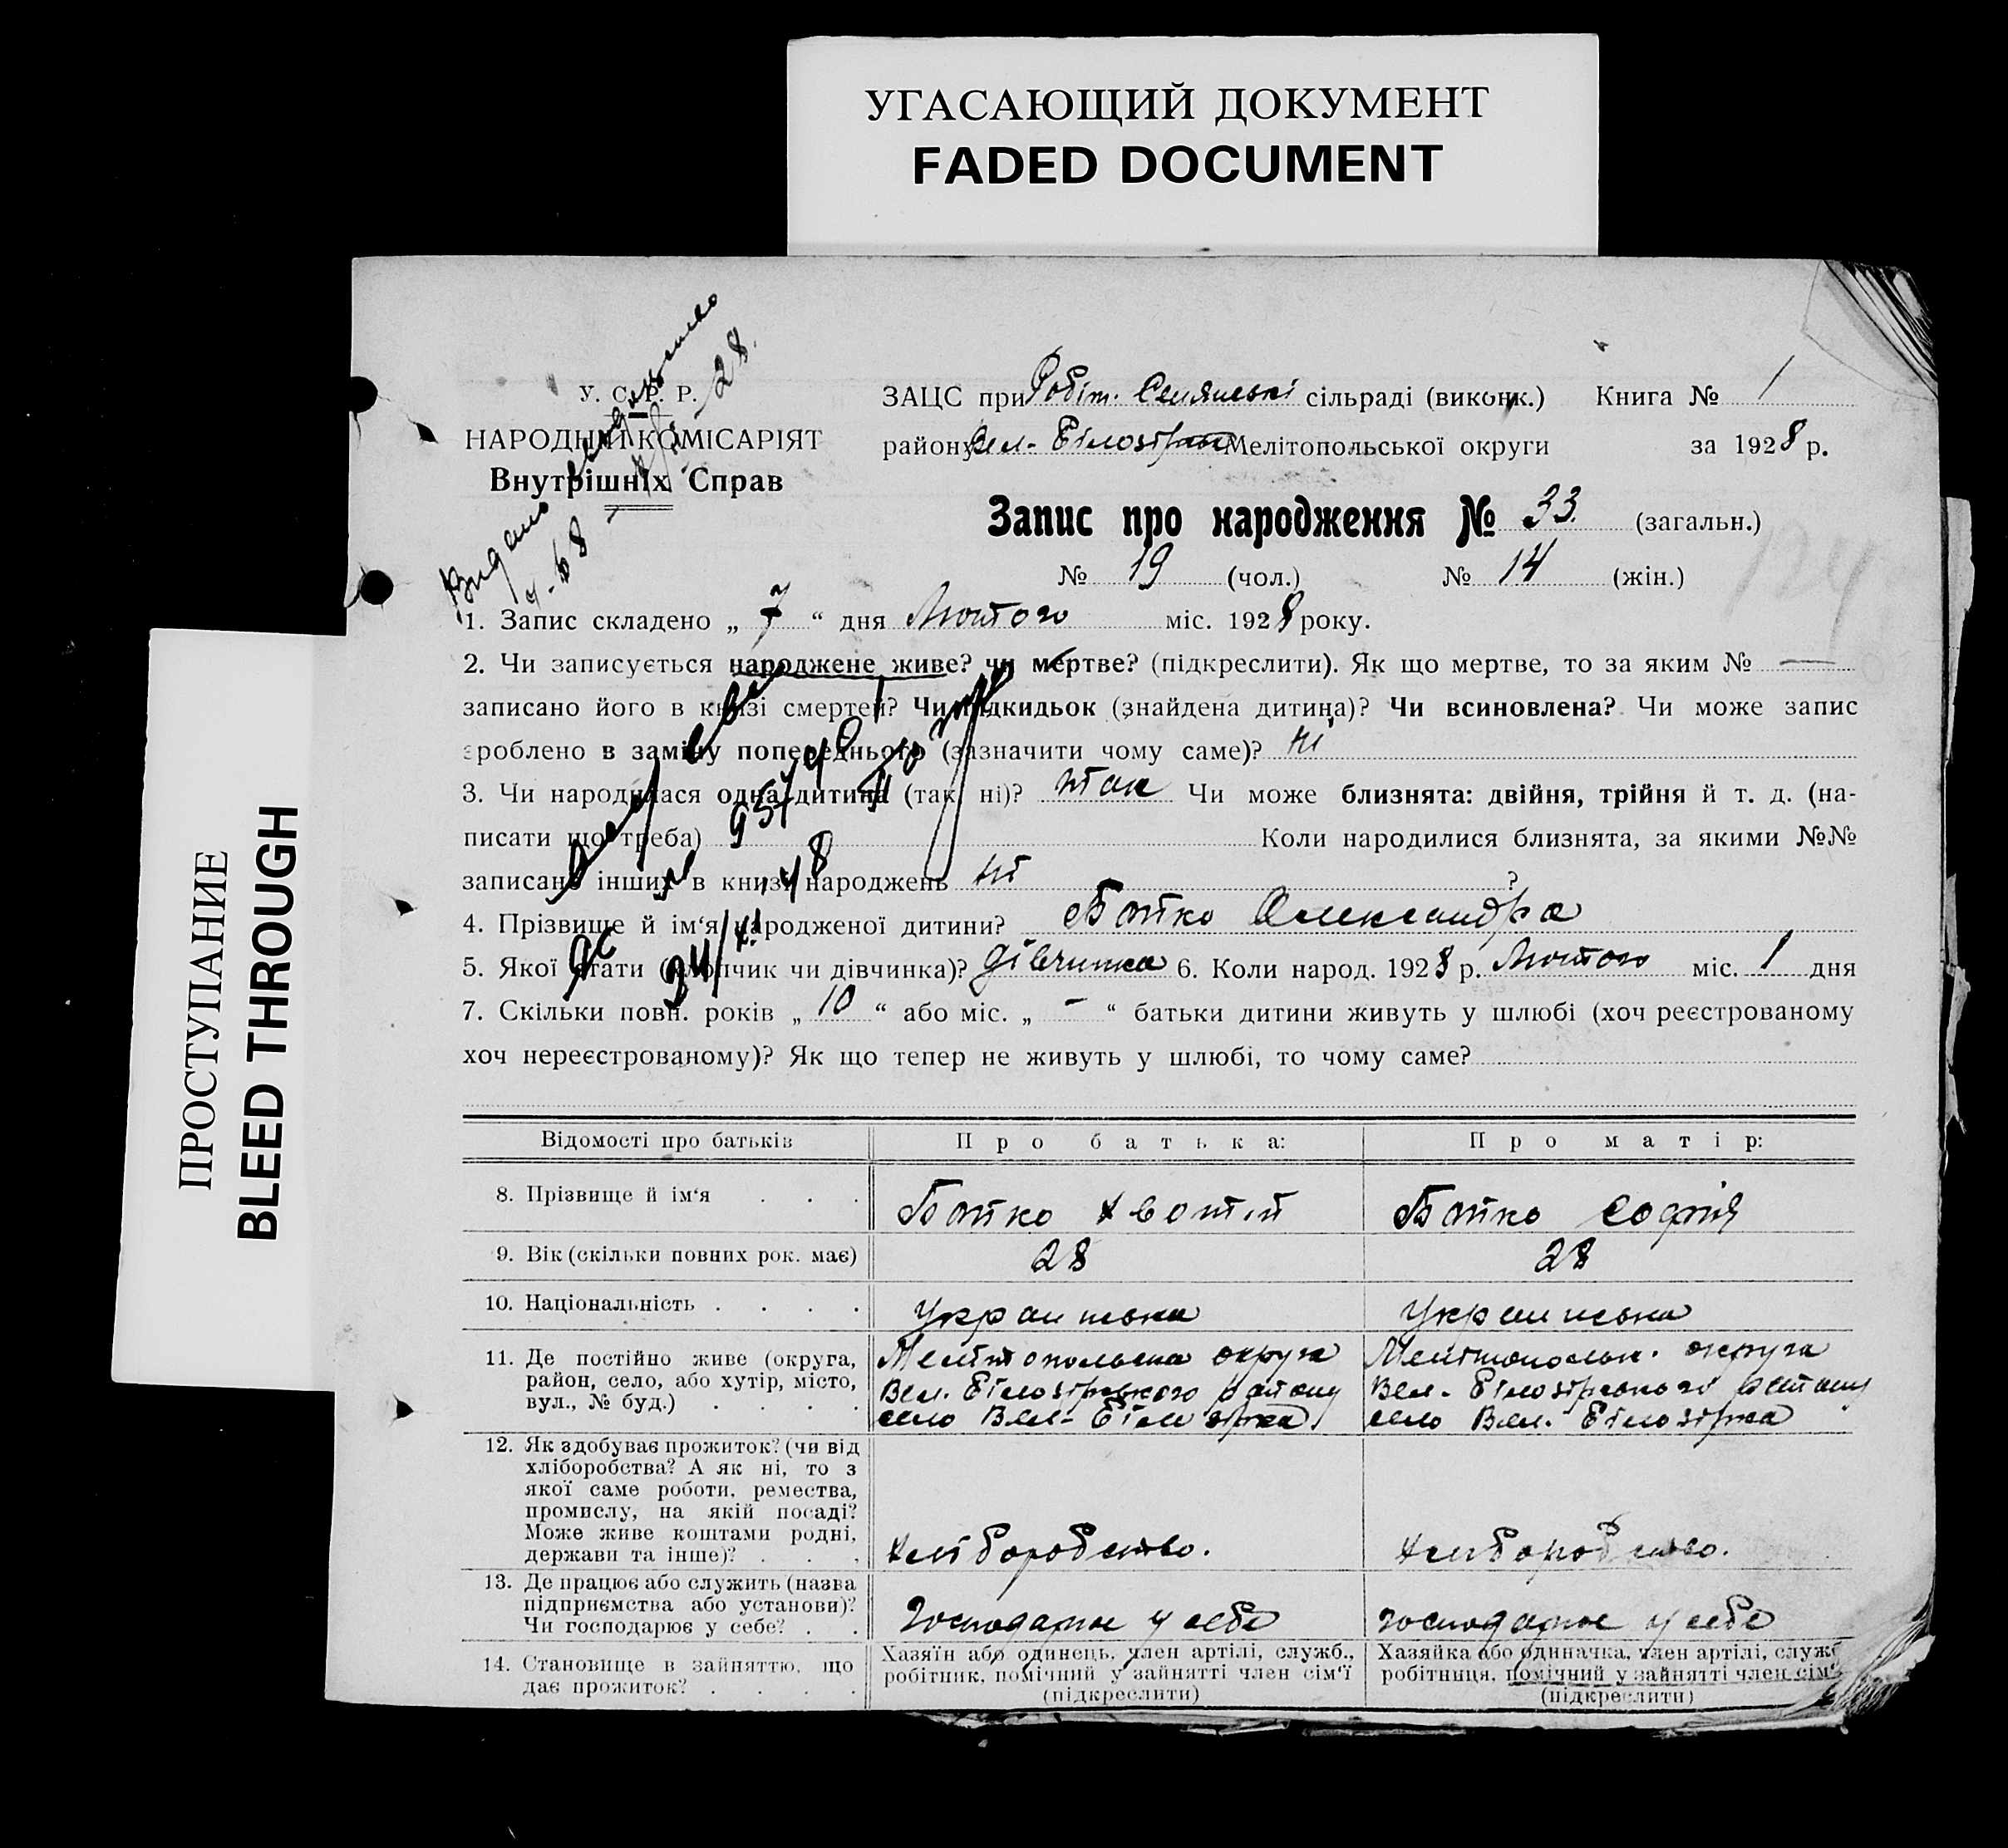 УГАСАЮЩИЙ ДОКУМЕНТ
FADED DOCUMENT
ПРОСТУПАНИЕ
BLEED THROUGH
У. С. Р. Р.
НАРОДНИЙ КОМІСАРІЯТ
Внутрішніх Справ
ЗАЦС при Робіт. Селянські сільраді (викон к.) Книга № 1
району Вел- Білозірськ Мелітопольської округи за 1928 р.
Запис про народження № 33. (загальн.)
№ 19 (чол.) № 14 (жін.)
Видано
28.
1. Запис складено „ 7 “ дня Лютого міс. 1928 року.
2. Чи записується народжене живе? чи мертве? (підкреслити). Як що мертве, то за яким № —
записано його в книзі смертей? Чи підкидьок (знайдена дитина)? Чи всиновлена? Чи може запис
зроблено в заміну попереднього (зазначити чому саме)? ні
3. Чи народилася одна дитина (так, ні)? так Чи може близнята: двійня, трійня й т. д. (на-
писати що треба) Коли народилися близнята, за якими №№
записано інших в книзі народжень ні ?
4. Прізвище й ім‘я народженої дитини? Бойко Олександра
5. Якої стати (хлопчик чи дівчинка)? дівчинка 6. Коли народ. 1928 р. Лютого міс. 1 дня
7. Скільки повн. років „ 10 “ або міс. „ - “ батьки дитини живуть у шлюбі (хоч реєстрованому
хоч нереєстрованому)? Як що тепер не живуть у шлюбі, то чому саме?
Відомості про батьків Про батька: Про матір:
8. Прізвище й ім‘я . . . Бойко Хвотій Бойко Софія
9. Вік (скільки повних рок. має) 28 28
10. Національність . . . . Українська Українська
11. Де постійно живе (округа, район, село, або хутір, місто, вул., № буд.) . . . .
Мелітопольска округа
Вел. Білозірського району
село Вел- Білозірка.
Мелітопольк. округа
Вел- Білозірського району
село Вел. Білозірка
12. Як здобуває прожиток? (чи від
хліборобства? А як ні, то з
якої саме роботи, ремества,
промислу, на якій посаді?
Може живе коштами родні,
держави та інше)? . . .
Хліборобство. Хліборобство.
13. Де працює або служить (назва
підприємства або установи)?
Чи господарює у себе? . .
Господарює у себе господарює у себе
14. Становище в зайняттю, що
дає прожиток? . . . .
Хазяїн або одинець, член артілі, служб.,
робітник, помічний у зайнятті член сім‘ї
(підкреслити)
Хазяйка або одиначка, член артілі, служб
робітниця, помічний у зайнятті член сім‘ї
(підкреслити)